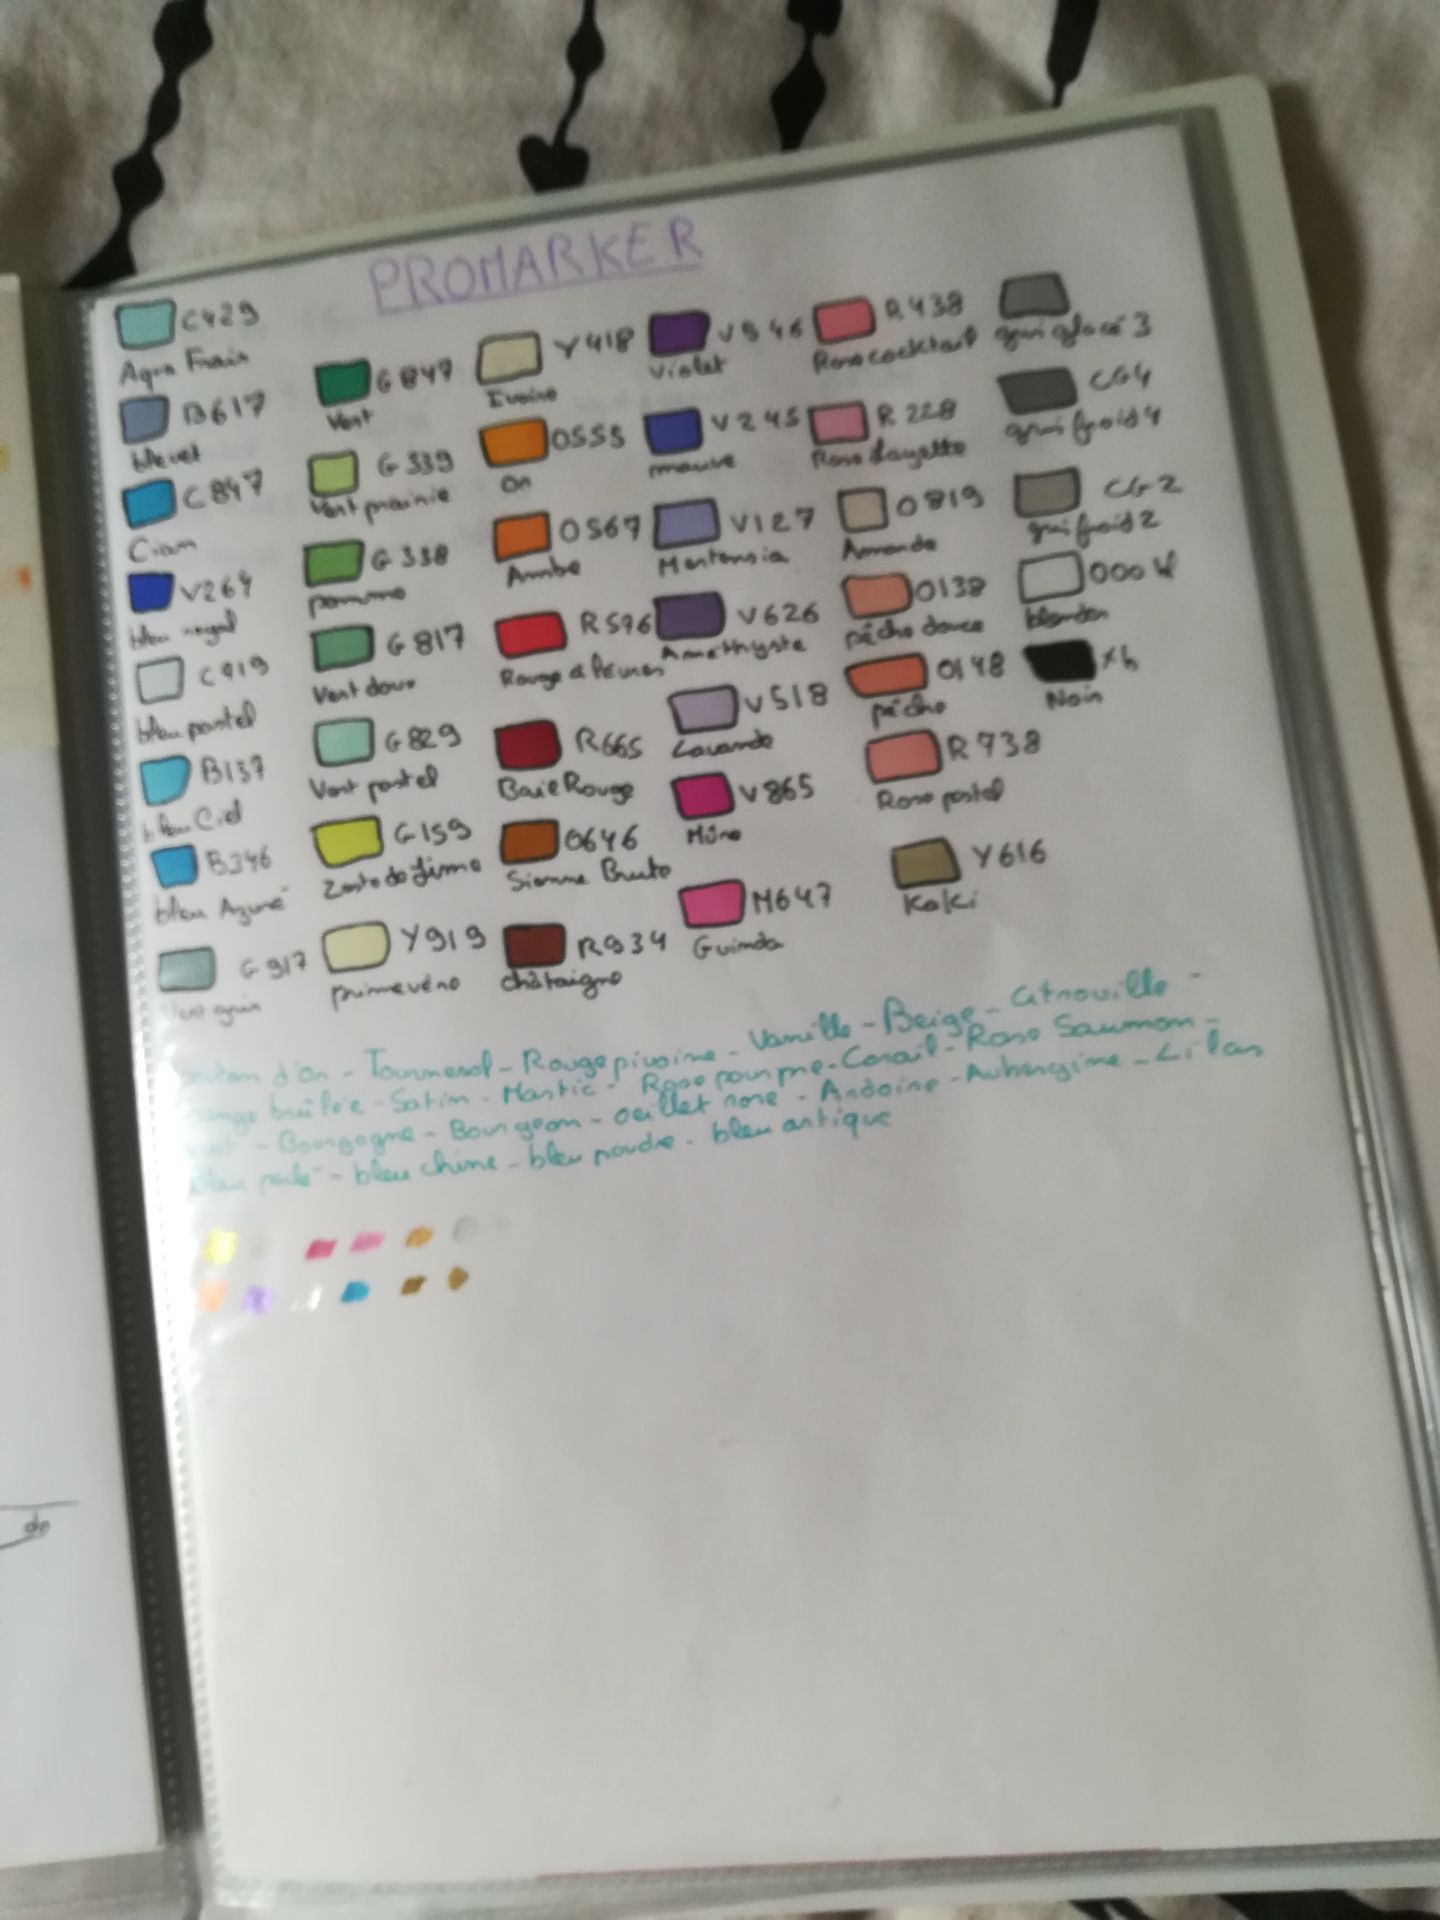 PROMARKER
C429
Aqua Frais
B617
bleuet
C847
Cian
V264
bleu royal
C919
bleu pastel
B137
bleu Ciel
B346
bleu Azuré
G917
Vert gris
G847
Vert
G339
Vert prairie
G338
pomme
G817
Vert doux
G829
Vert pastel
G159
Zeste de Lime
Y919
primevère
Y418
Ivoire
O555
Or
O567
Ambre
R576
Rouge à lèvres
R665
Baie Rouge
O646
Sienne Brute
R934
châtaigne
V546
Violet
V245
mauve
V127
Hortensia
V626
Améthyste
V518
Lavande
V865
Mûre
M647
Guimda
R438
Rose cocktail
R228
Rose Layette
O819
Amande
O138
pêche douce
O148
pêche
R738
Rose pastel
Y616
Kaki
gris glacé 3
CG4
gris froid 4
CG2
gris froid 2
000 W
blender
Xb
Noir
bouton d'Or - Tournesol - Rouge pivoine - Vanille - Beige - Citrouille -
orange brûlée - Satin - Mastic - Rose pourpre - Corail - Rose Saumon -
- Bourgogne - Bourgeon - oeillet rose - Ardoise - Aubergine - Lilas
bleu - bleu chine - bleu poudre - bleu antique
de